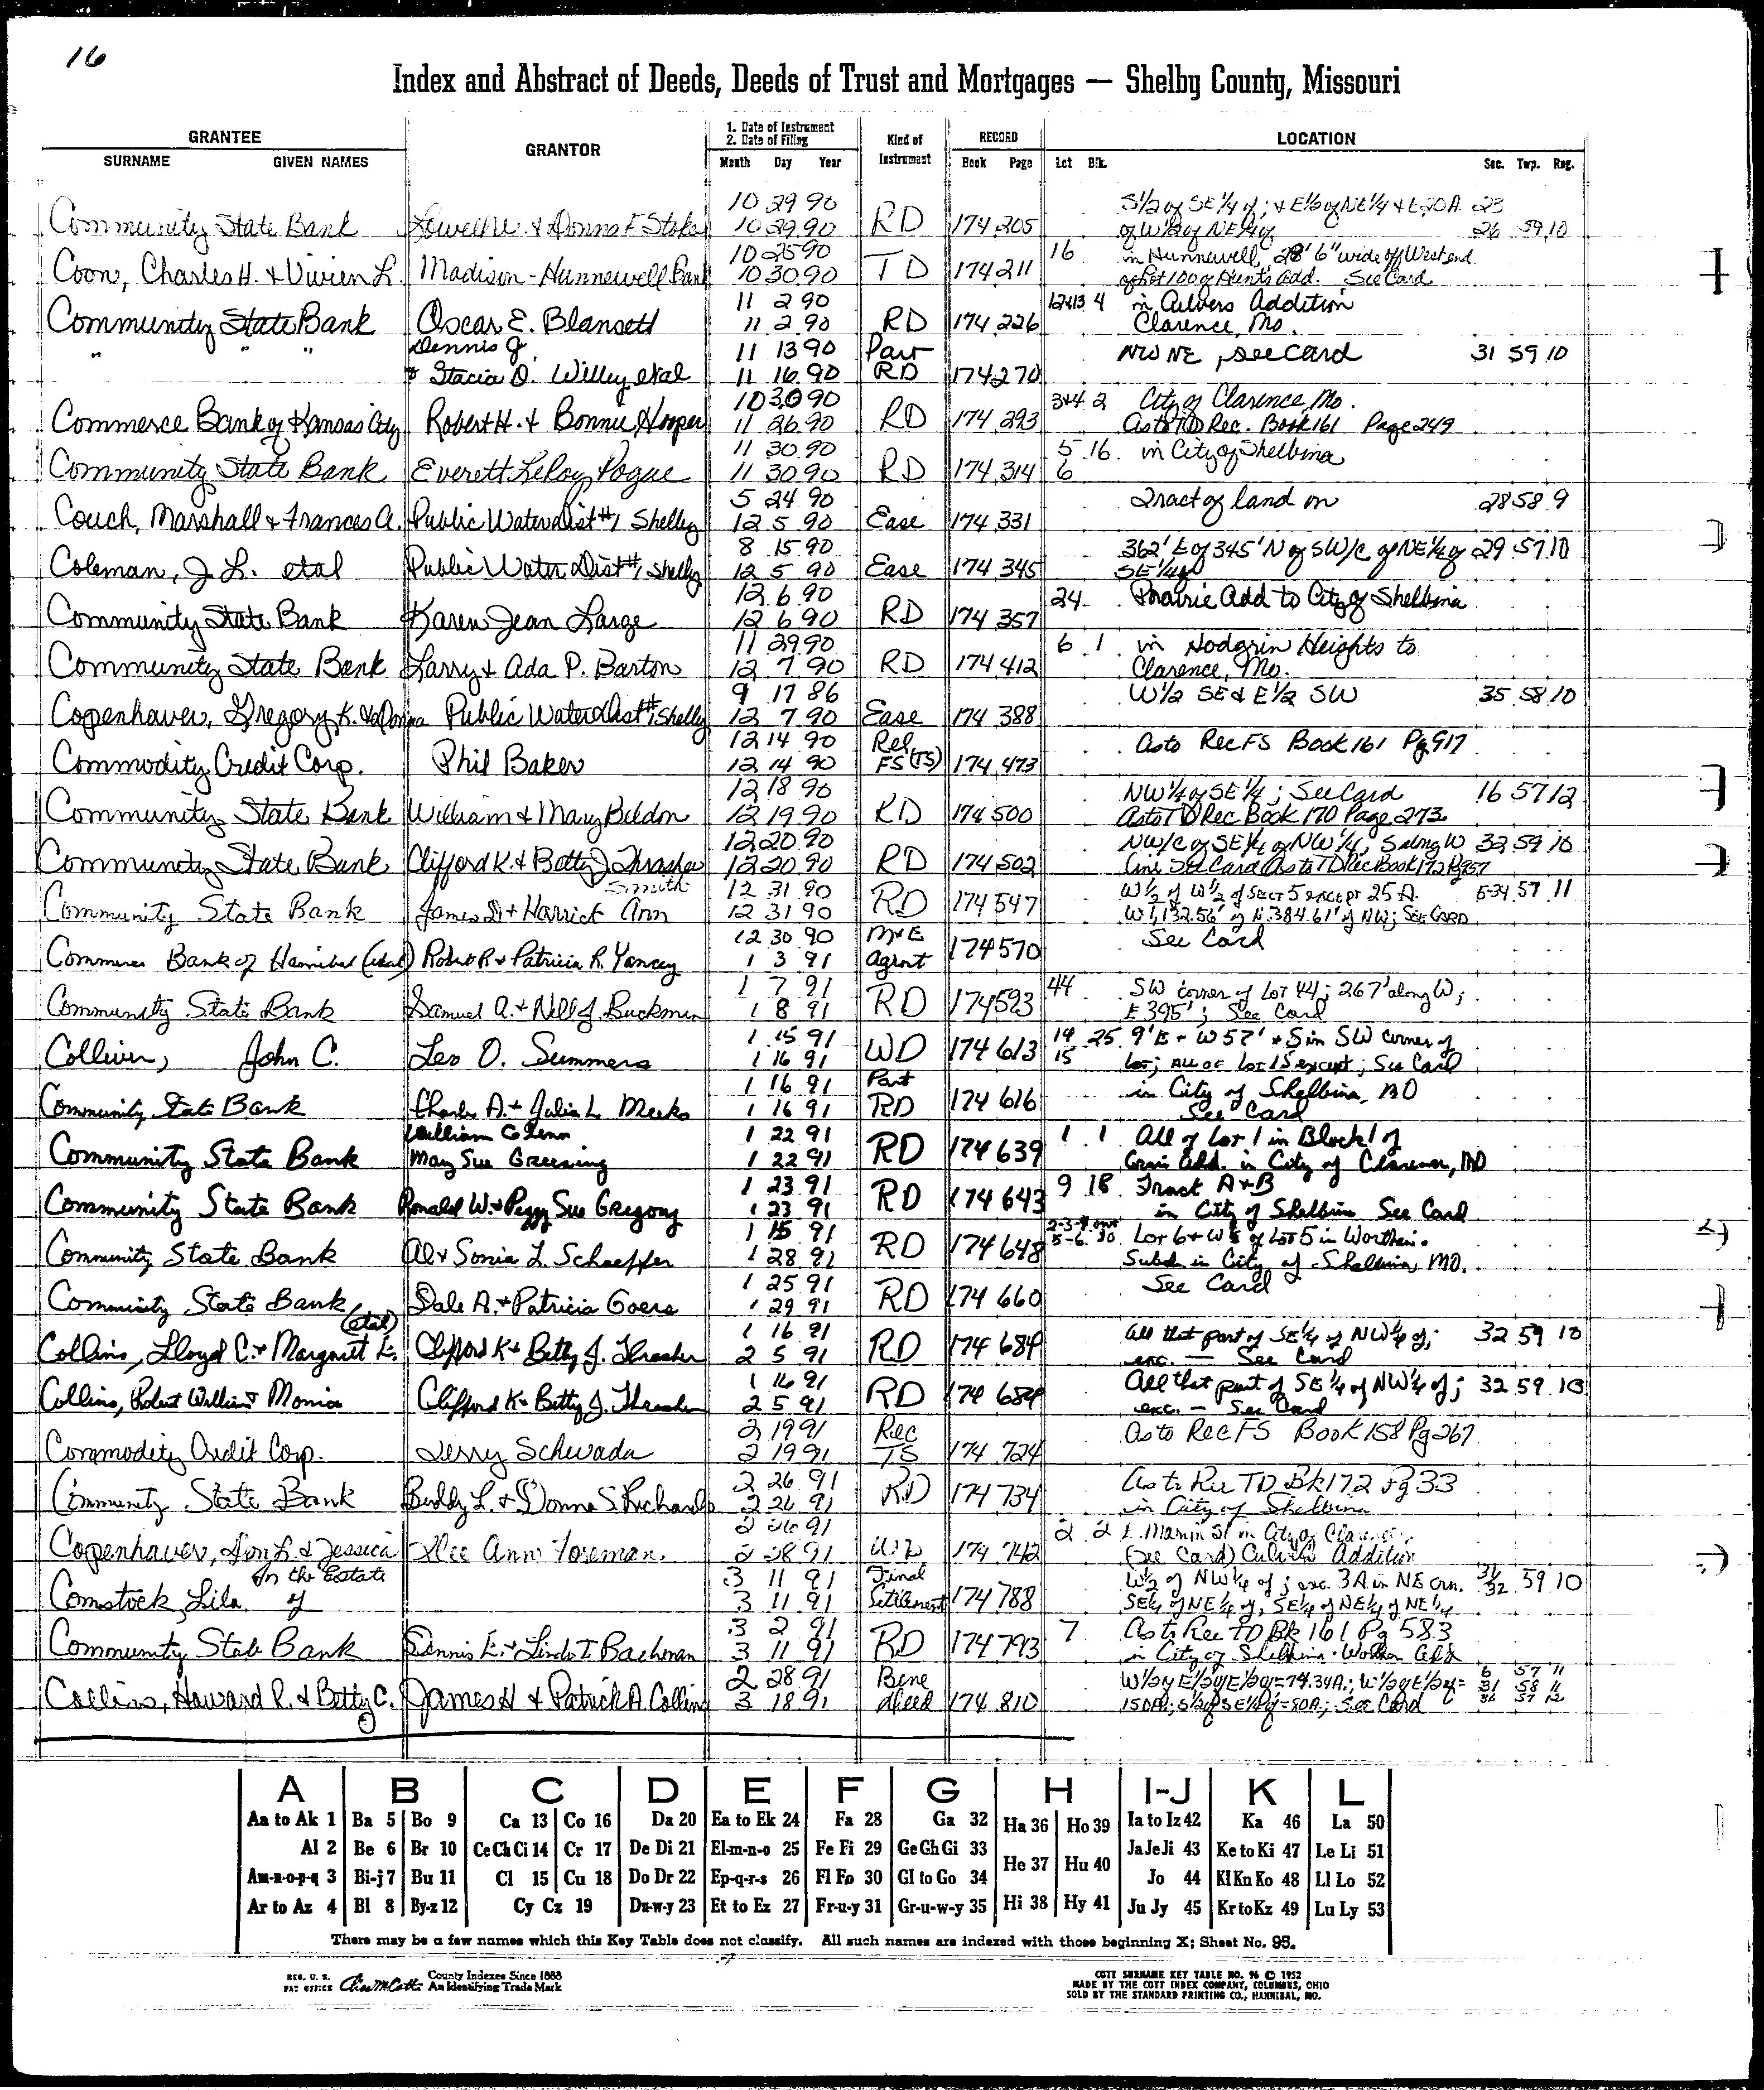 16
Index and Abstract of Deeds, Deeds of Trust and Mortgages — Shelby County, Missouri
GRANTEE GRANTOR 1. Date of Instrument 2. Date of Filing Kind of Instrument RECORD LOCATION
SURNAME GIVEN NAMES Month Day Year Book Page Lot Blk. Sec. Twp. Rng.
10 29 90 S1/2 of SE1/4 of; & E1/2 of NE1/4 & E20A 23
Community State Bank Lowell W. & Donna F. Stokes 10 29 90 RD 174 205 of W1/2 of NE1/4 of 26 59 10
10 25 90 16 in Hunnewell, 28' 6" wide off West end
Coon, Charles H. & Vivien L. Madison-Hunnewell Bank 10 30 90 TD 174 211 of Lot 100 of Hunt's Add. See Card
11 2 90 12&13 4 in Culvers Addition
Community State Bank Oscar E. Blansett 11 2 90 RD 174 226 Clarence, Mo.
" " " Dennis J. 11 13 90 Part NW NE, see card 31 59 10
& Stacia D. Willey etal 11 16 90 RD 174 270
10 30 90 3&4 2 City of Clarence, Mo.
Commerce Bank of Kansas City Robert H. & Bonnie Hooper 11 26 90 RD 174 293 As to TD Rec. Book 161 Page 249
11 30 90 5 16 in City of Shelbina
Community State Bank Everett LeRoy Pogue 11 30 90 RD 174 314 6
5 24 90 Tract of land on 28 58 9
Couch, Marshall & Frances A. Public Water Dist #1 Shelby 12 5 90 Ease 174 331
8 15 90 362' E of 345' N of SW/C of NE1/4 of 29 57 10
Coleman, J. L. etal Public Water Dist #1, Shelby 12 5 90 Ease 174 345 SE1/4 of
12 6 90 24 Prairie Add to City of Shelbina
Community State Bank Karen Jean Large 12 6 90 RD 174 357
11 29 90 6 1 in Hodgrin Heights to
Community State Bank Larry & Ada P. Barton 12 7 90 RD 174 412 Clarence, Mo.
9 17 86 W1/2 SE & E1/2 SW 35 58 10
Copenhaver, Gregory K. & Donna Public Water Dist #1, Shelby 12 7 90 Ease 174 388
12 14 90 Rel As to Rec FS Book 161 Pg 917
Commodity Credit Corp. Phil Baker 12 14 90 FS (TS) 174 473
12 18 90 NW1/4 of SE1/4; See Card 16 57 12
Community State Bank William & Mary Beldon 12 19 90 RD 174 500 As to TD Rec Book 170 Page 273
12 20 90 NW/C of SE1/4 of NW1/4, S along W 32 59 10
Community State Bank Clifford K. & Betty J. Thrasher 12 20 90 RD 174 502 line See Card As to TD Rec Book 172 Pg 957
Smith 12 31 90 W1/2 of W1/2 of Sect 5 except 25 A. 5-34 57 11
Community State Bank James D. & Harriet Ann 12 31 90 RD 174 547 W1,132.56' of N.384.61' of NW; See Card
12 30 90 M&E See Card
Commerce Bank of Hannibal (etal) Robert R. & Patricia R. Yancey 1 3 91 Agrmt 174 570
1 7 91 44 SW corner of Lot 44; 267' along W;
Community State Bank Samuel A. & Nell J. Buckman 1 8 91 RD 174 593 E 395'; See Card
1 15 91 14 25 9' E - W 57' & S in SW corner of
Colliver, John C. Leo O. Summers 1 16 91 WD 174 613 15 Lot; All of Lot 15 except; See Card
1 16 91 Part in City of Shelbina, MO
Community State Bank Charles A. & Julia L. Meeks 1 16 91 RD 174 616 See Card
William Glenn 1 22 91 1 1 All of Lot 1 in Block 1 of
Community State Bank Mary Sue Greening 1 22 91 RD 174 639 Add. in City of Clarence, MO
1 23 91 9 18 Tract A & B
Community State Bank Ronald W. & Peggy Sue Gregory 1 23 91 RD 174 643 in City of Shelbina See Card
1 15 91 2-3-4 Lot 6 & W of Lot 5 in
Community State Bank Al & Sonia L. Schaeffer 1 28 91 RD 174 648 5-6 30 Subd. in City of Shelbina, MO.
1 25 91 See Card
Community State Bank Dale A. & Patricia Goers 1 29 91 RD 174 660
(etal) 1 16 91 All that part of SE1/4 of NW1/4 of; 32 59 10
Collins, Lloyd C. & Margaret L. Clifford K. & Betty J. Thrasher 2 5 91 RD 174 684 exc. — See Card
1 16 91 All that part of SE1/4 of NW1/4 of; 32 59 10
Collins, Robert William & Monica Clifford K. & Betty J. Thrasher 2 5 91 RD 174 684 exc. — See Card
2 19 91 Rec As to Rec FS Book 158 Pg 267
Commodity Credit Corp. Jerry Schwada 2 19 91 TS 174 724
2 26 91 As to Rec TD Bk 172 Pg 33
Community State Bank Buddy L. & Donna S. Richards 2 26 91 RD 174 734 in City of Shelbina
2 26 91 2 2 in City of Clarence
Copenhaver, Don L. & Jessica Ann Foreman 2 28 91 WD 174 742 (See Card) Culvers Addition
In the Estate 3 11 91 Final W1/2 of NW1/4 of; exc. 3A in NE crn. 31 32 59 10
Comstock, Lila of 3 11 91 Settlement 174 788 SE1/4 of NE1/4 of, SE1/4 of NE1/4 of NE1/4
3 2 91 7 As to Rec TD Bk 161 Pg 583
Community State Bank Dennis L. & Linda T. Bachman 3 11 91 RD 174 793 in City of Shelbina Add
2 28 91 Bene W1/2 of E1/2 of E1/2 of = 74.34A.; W1/2 of E1/2 of = 6 57 11 31 58 11
Collins, Howard R. & Betty C. James H & Patrick A. Collins 3 18 91 deed 174 810 150A; S1/2 of SE1/4 of = 80A.; See Card 36 57 12
A B C D E F G H I-J K L
Aa to Ak 1 Ba 5 Bo 9 Ca 13 Co 16 Da 20 Ea to Ek 24 Fa 28 Ga 32 Ha 36 Ho 39 Ia to Iz 42 Ka 46 La 50
Al 2 Be 6 Br 10 Ce Ch Ci 14 Cr 17 De Di 21 El-m-n-o 25 Fe Fi 29 Ge Gh Gi 33 He 37 Hu 40 Ja Je Ji 43 Ke to Ki 47 Le Li 51
Am-n-o-p-q 3 Bi-j 7 Bu 11 Cl 15 Cu 18 Do Dr 22 Ep-q-r-s 26 Fl Fo 30 Gl to Go 34 Jo 44 Kl Kn Ko 48 Ll Lo 52
Ar to Az 4 Bl 8 By-z 12 Cy Cz 19 Du-w-y 23 Et to Ez 27 Fr-u-y 31 Gr-u-w-y 35 Hi 38 Hy 41 Ju Jy 45 Kr to Kz 49 Lu Ly 53
There may be a few names which this Key Table does not classify. All such names are indexed with those beginning X; Sheet No. 95.
REG. U. S. PAT OFFICE County Indexes Since 1888 An Identifying Trade Mark
COTT SURNAME KEY TABLE NO. 96 © 1952
MADE BY THE COTT INDEX COMPANY, COLUMBUS, OHIO
SOLD BY THE STANDARD PRINTING CO., HANNIBAL, MO.